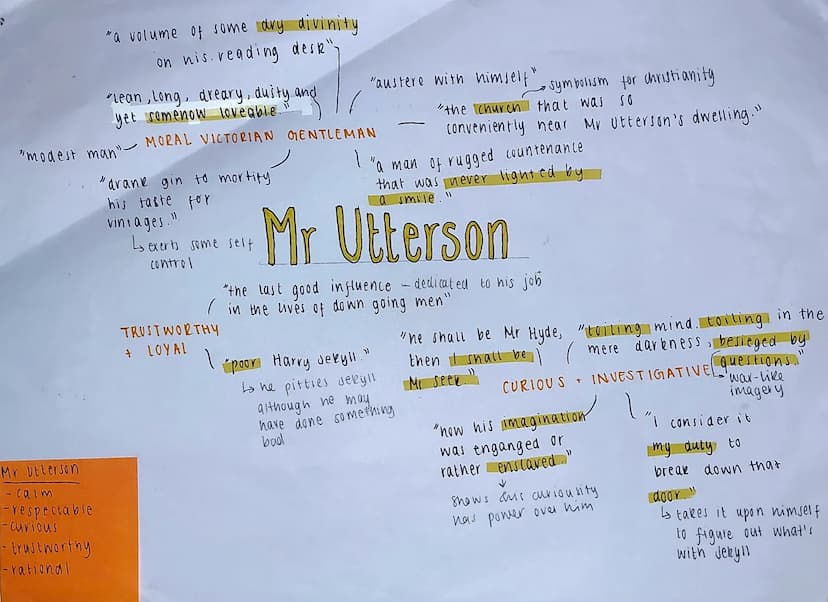 "a volume of some dry divinity
on his reading desk"
"lean, long, dreary, dusty and
yet somehow loveable."
"austere with himself"
symbolism for christianity
"the church that was so
conveniently near Mr Utterson's dwelling."
MORAL VICTORIAN GENTLEMAN
"modest man"
"a man of rugged countenance
that was never lighted by
a smile."
"drank gin to mortify
his taste for
vintages."
↳ exerts some self
control
Mr Utterson
"the last good influence – dedicated to his job
in the lives of down going men"
TRUSTWORTHY
+ LOYAL
"poor Harry Jekyll."
↳ he pitties Jekyll
although he may
have done something
bad
"he shall be Mr Hyde,
then I shall be
Mr Seek."
"toiling mind, toiling in the
mere darkness, besieged by
questions."
CURIOUS + INVESTIGATIVE
war-like
imagery
"now his imagination
was enganged or
rather enslaved."
shows curiousity
has power over him
"I consider it
my duty to
break down that
door"
↳ takes it upon himself
to figure out what's
with Jekyll
Mr Utterson
- calm
- respectable
- curious
- trustworthy
- rational